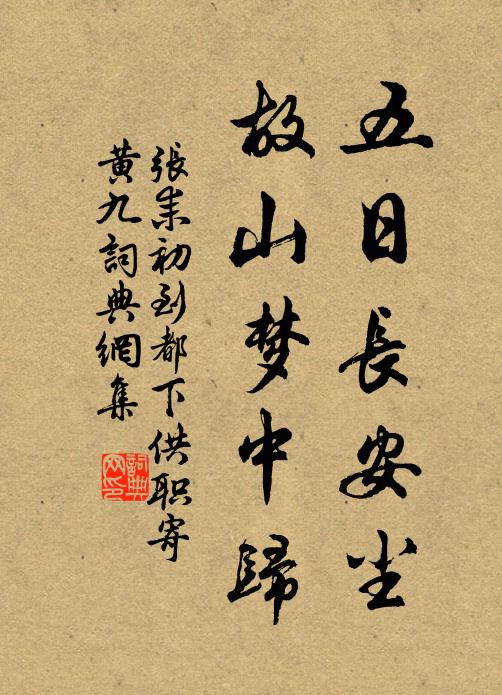 五日長安尘
故山梦中歸
張耒初到都下供职寄
黄九詞典網集
詞典
网印